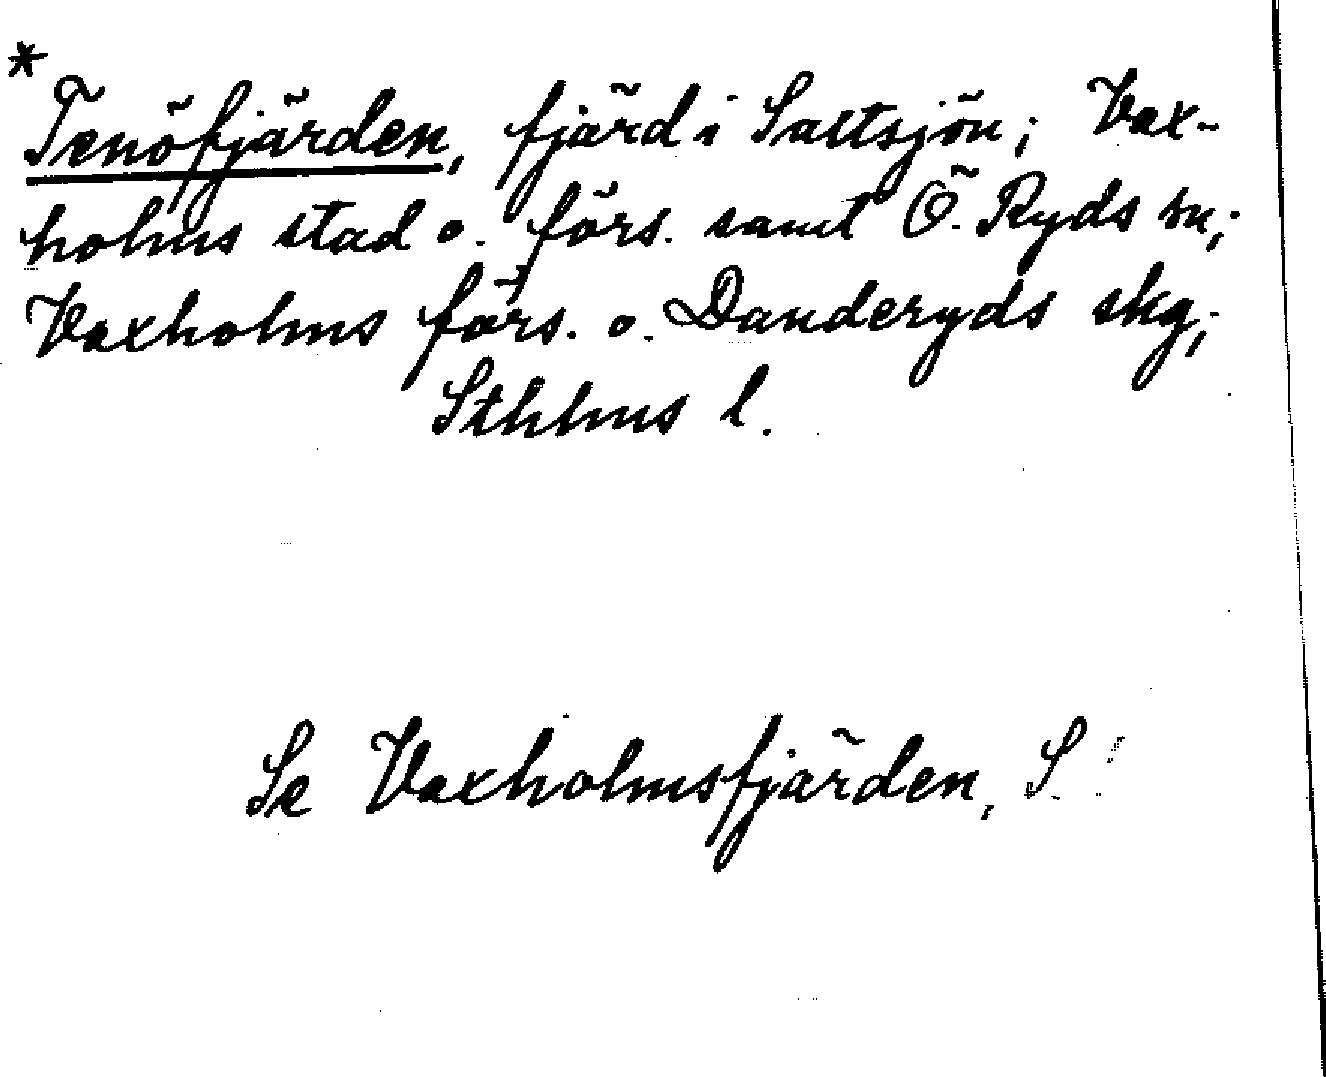 *
Tenöfjärden, fjärd i Saltsjön; Vax-
holms stad o. förs. samt Ö. Ryds sn;
Vaxholms förs. o. Danderyds skg;
Sthlms l.
Se Vaxholmsfjärden, S